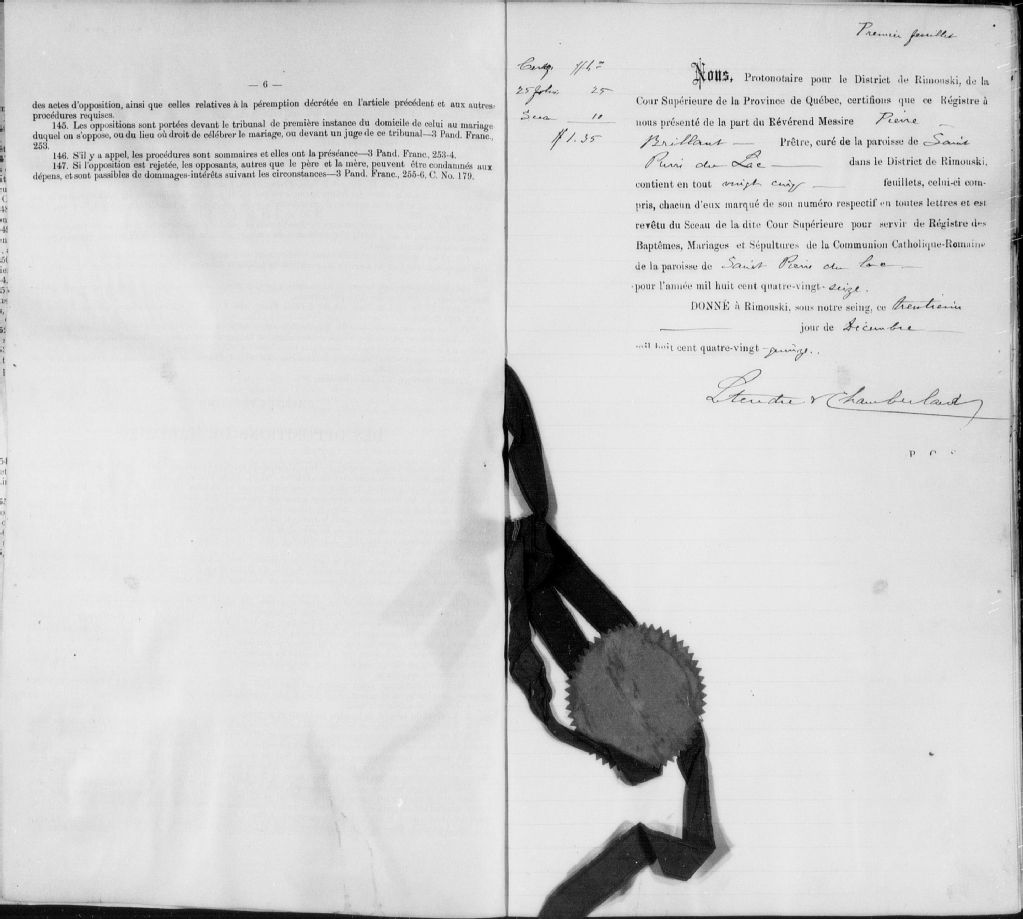 — 6 —
des actes d'opposition, ainsi que celles relatives à la péremption décrétée en l'article précédent et aux autres
procédures requises.
145. Les oppositions sont portées devant le tribunal de première instance du domicile de celui au mariage
duquel on s'oppose, ou du lieu où droit de célébrer le mariage, ou devant un juge de ce tribunal—3 Pand. Franc.,
253.
146. S'il y a appel, les procédures sont sommaires et elles ont la préséance—3 Pand. Franc., 253-4.
147. Si l'opposition est rejetée, les opposants, autres que le père et la mère, peuvent être condamnés aux
dépens, et sont passibles de dommages-intérêts suivant les circonstances—3 Pand. Franc., 255-6, C. No. 179.
Premier feuillet
25 folios 25
10
$1.35
Nous, Protonotaire pour le District de Rimouski, de la
Cour Supérieure de la Province de Québec, certifions que ce Régistre à
nous présenté de la part du Révérend Messire Pierre —
Brillant — Prêtre, curé de la paroisse de Saint
Pierre du Lac — dans le District de Rimouski,
contient en tout vingt cinq — feuillets, celui-ci com-
pris, chacun d'eux marqué de son numéro respectif en toutes lettres et est
revêtu du Sceau de la dite Cour Supérieure pour servir de Régistre des
Baptêmes, Mariages et Sépultures de la Communion Catholique-Romaine
de la paroisse de Saint Pierre du Lac —
pour l'année mil huit cent quatre-vingt-seize.
DONNÉ à Rimouski, sous notre seing, ce trentième
— jour de Décembre —
mil huit cent quatre-vingt-quinze.
Letendre & Chamberland
P C S